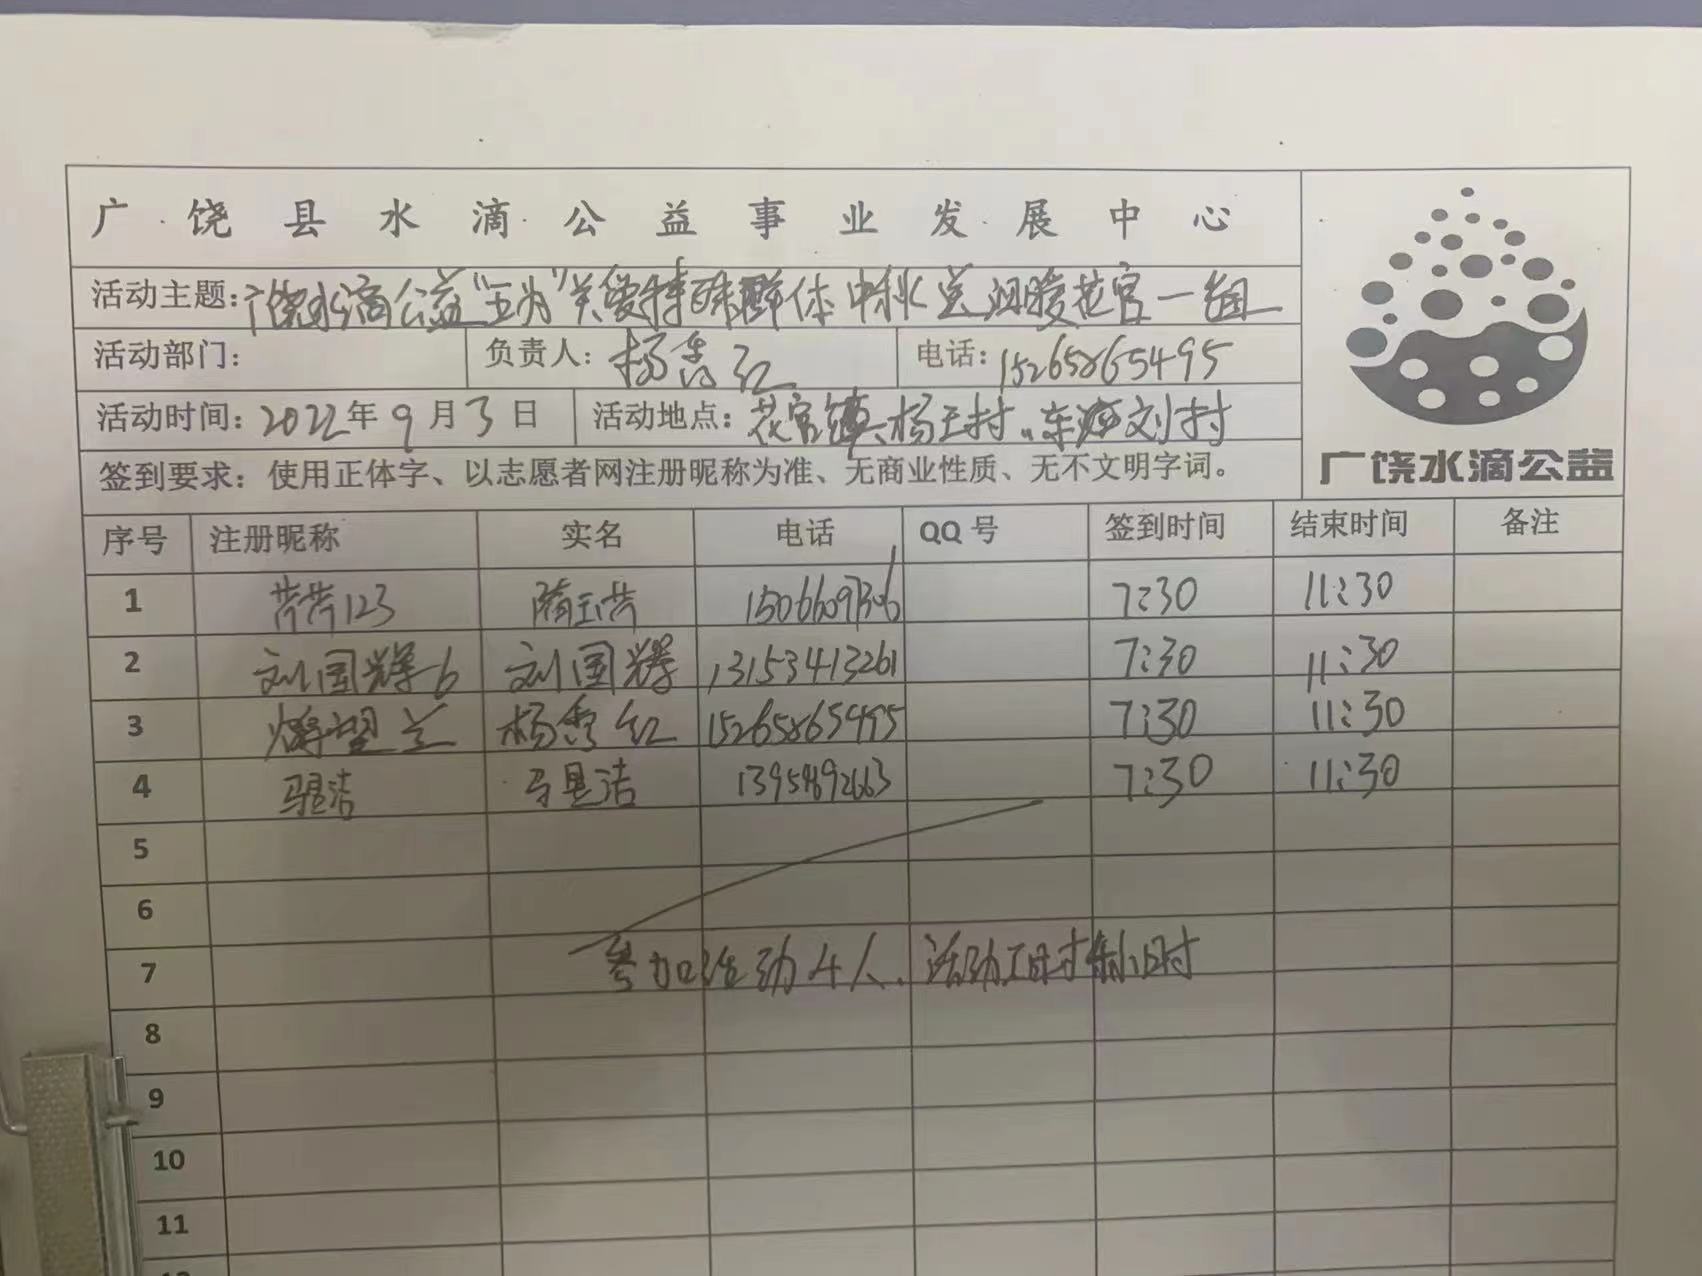 广饶县水滴公益事业发展中心
活动主题:广饶水滴公益"五为"关爱特殊群体中秋送温暖花官一组
活动部门:
负责人:杨秀红
电话:15265865495
活动时间:2022年9月3日
活动地点:花官镇、杨王村、东 刘村
签到要求:使用正体字、以志愿者网注册昵称为准、无商业性质、无不文明字词。
广饶水滴公益
序号 注册昵称 实名 电话 QQ号 签到时间 结束时间 备注
1 芳芳123 隋玉芳 7:30 11:30
2 刘国辉6 刘国辉 13153413261 7:30 11:30
3 杨秀红 15265865495 7:30 11:30
4 马昱洁 马昱洁 7:30 11:30
5
6
7 参加活动4人、活动工时 小时
8
9
10
11